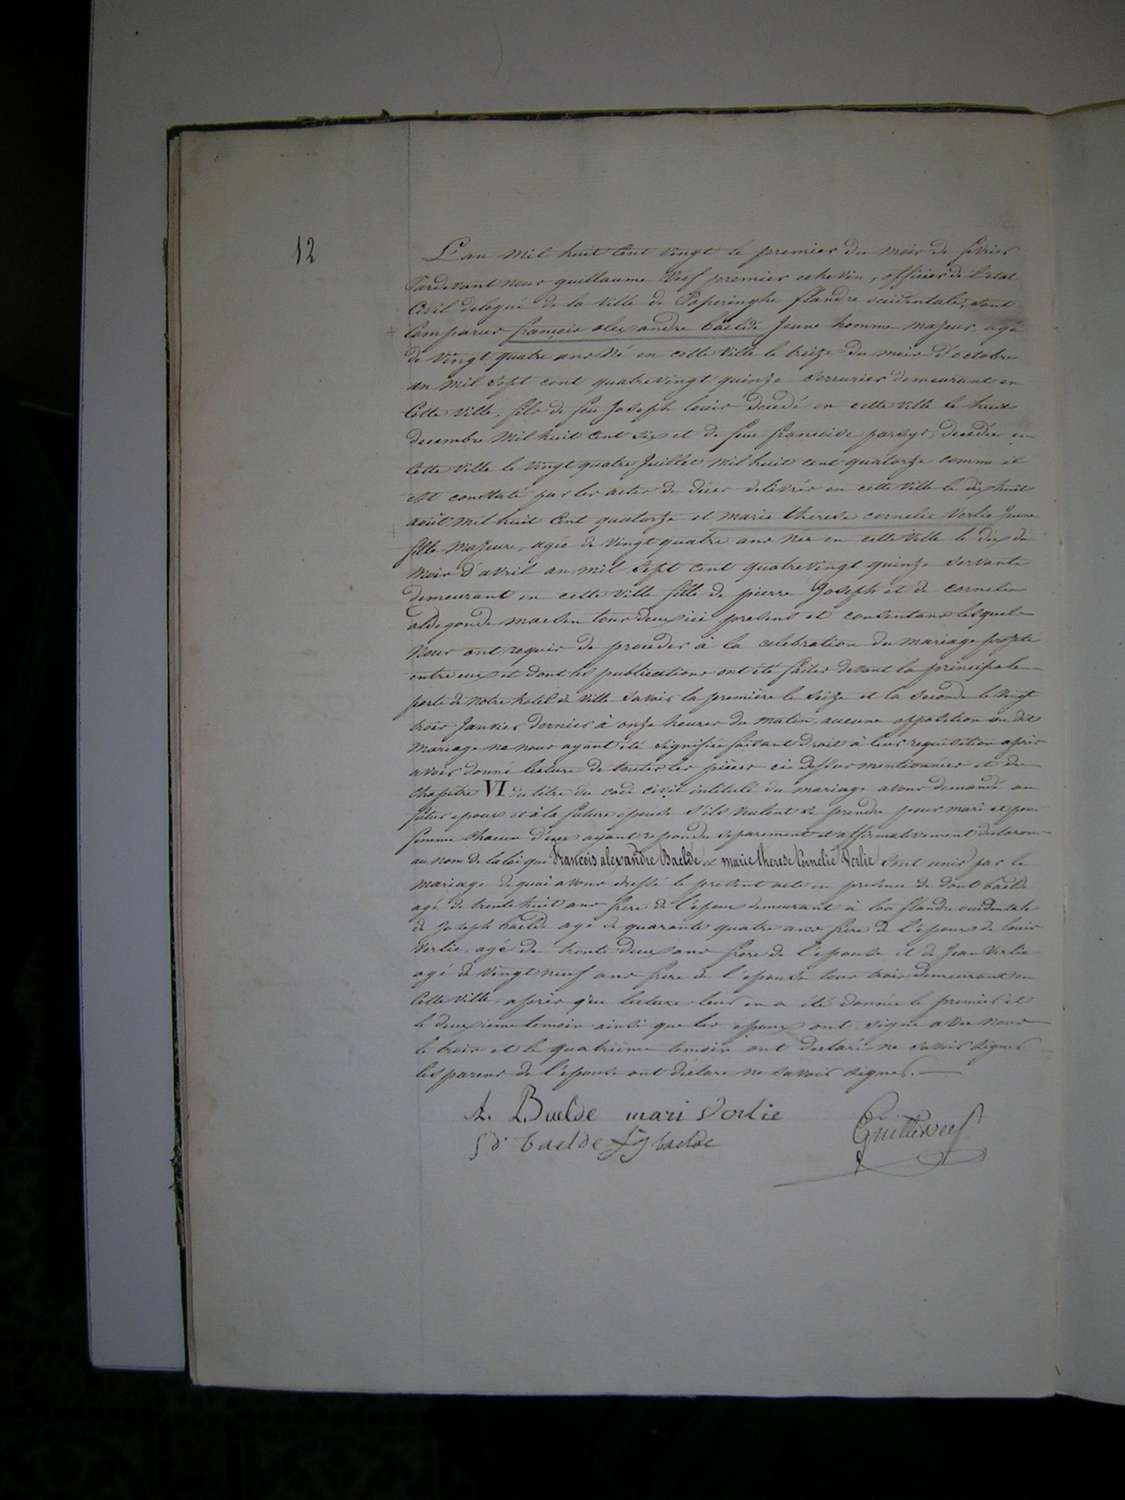 12
L'an mil huit cent vingt le premier du mois de fevrier
Pardevant nous guillaume Neef premier echevin, officier de l'etat
Civil delegué de la ville de Poperinghe flandre occidentale, sont
Comparus françois alexandre baelde Jeune homme majeur, agé
de vingt quatre ans né en cette ville le treize du mois d'octobre
an mil sept cent quatrevingt quinze serrurier demeurant en
Cette ville, fils de feu Joseph louis decedé en cette ville le
decembre mil huit cent six et de feue françoise decedée en
Cette ville le vingt quatre Juillet mil huit cent quatorze comme il
est constaté par les actes de décès delivrés en cette ville le dix huit
août mil huit cent quatorze et marie therese cornelie Verlie Jeune
fille majeure, agée de vingt quatre ans née en cette ville le dix du
mois d'avril an mil sept cent quatrevingt quinze servante
demeurant en cette ville fille de pierre Joseph et de cornelie
aldegonde maelen tous deux ici present et consentans lesquels
Nous ont requis de proceder à la celebration du mariage projeté
entre eux et dont les publications ont été faites devant la principale
porte de notre hotel de ville savoir la première le seize et la seconde le vingt
trois Janvier dernier à onze heures du matin, aucune opposition au dit
Mariage ne nous ayant été signifiée faisant droit à leur requisition après
avoir donné lecture de toutes les pièces ci dessus mentionnées et du
chapitre VI du titre du code civil intitulé du mariage avons demandé au
futur epoux et à la future epouse s'ils veulent se prendre pour mari et pour
femme chacun d'eux ayant repondu separement et affirmativement declarons
au nom de la loi que François alexandre Baelde et marie therese Cornelie Verlie sont unis par le
mariage de quoi avons dressé le present acte en presence de baelde
agé de trente huit ans frere de l'epoux demeurant à flandre occidentale
de Joseph baelde agé de quarante quatre ans frere de l'epoux de louis
Verlie agé de trente deux ans frere de l'epouse et de Jean Verlie
agé de vingt neuf ans frere de l'epouse tous trois demeurant en
Cette ville, après qu'en lecture leur en a été donnée le premier et
le deuxieme temoin ainsi que les epoux ont signé avec nous
le trois et le quatrième temoin ont declaré ne savoir signer
les parens de l'epouse ont déclaré ne savoir signer.
A. Baelde mari Verlie
baelde baelde
Guill Neef